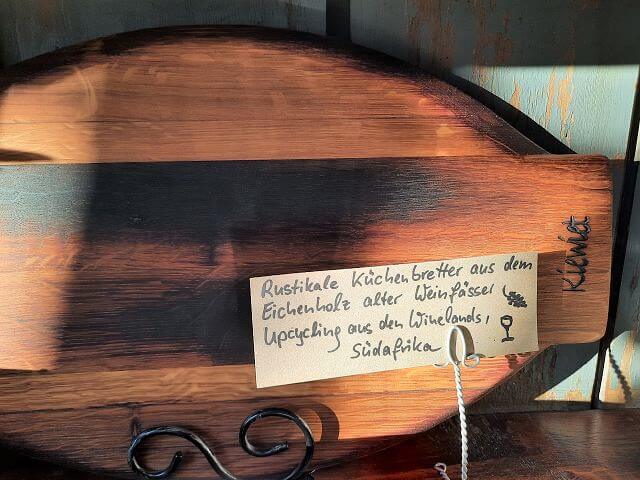 Rustikale Küchenbretter aus dem
Eichenholz alter Weinfässer
Upcycling aus den Winelands,
Südafrika
Kieniet